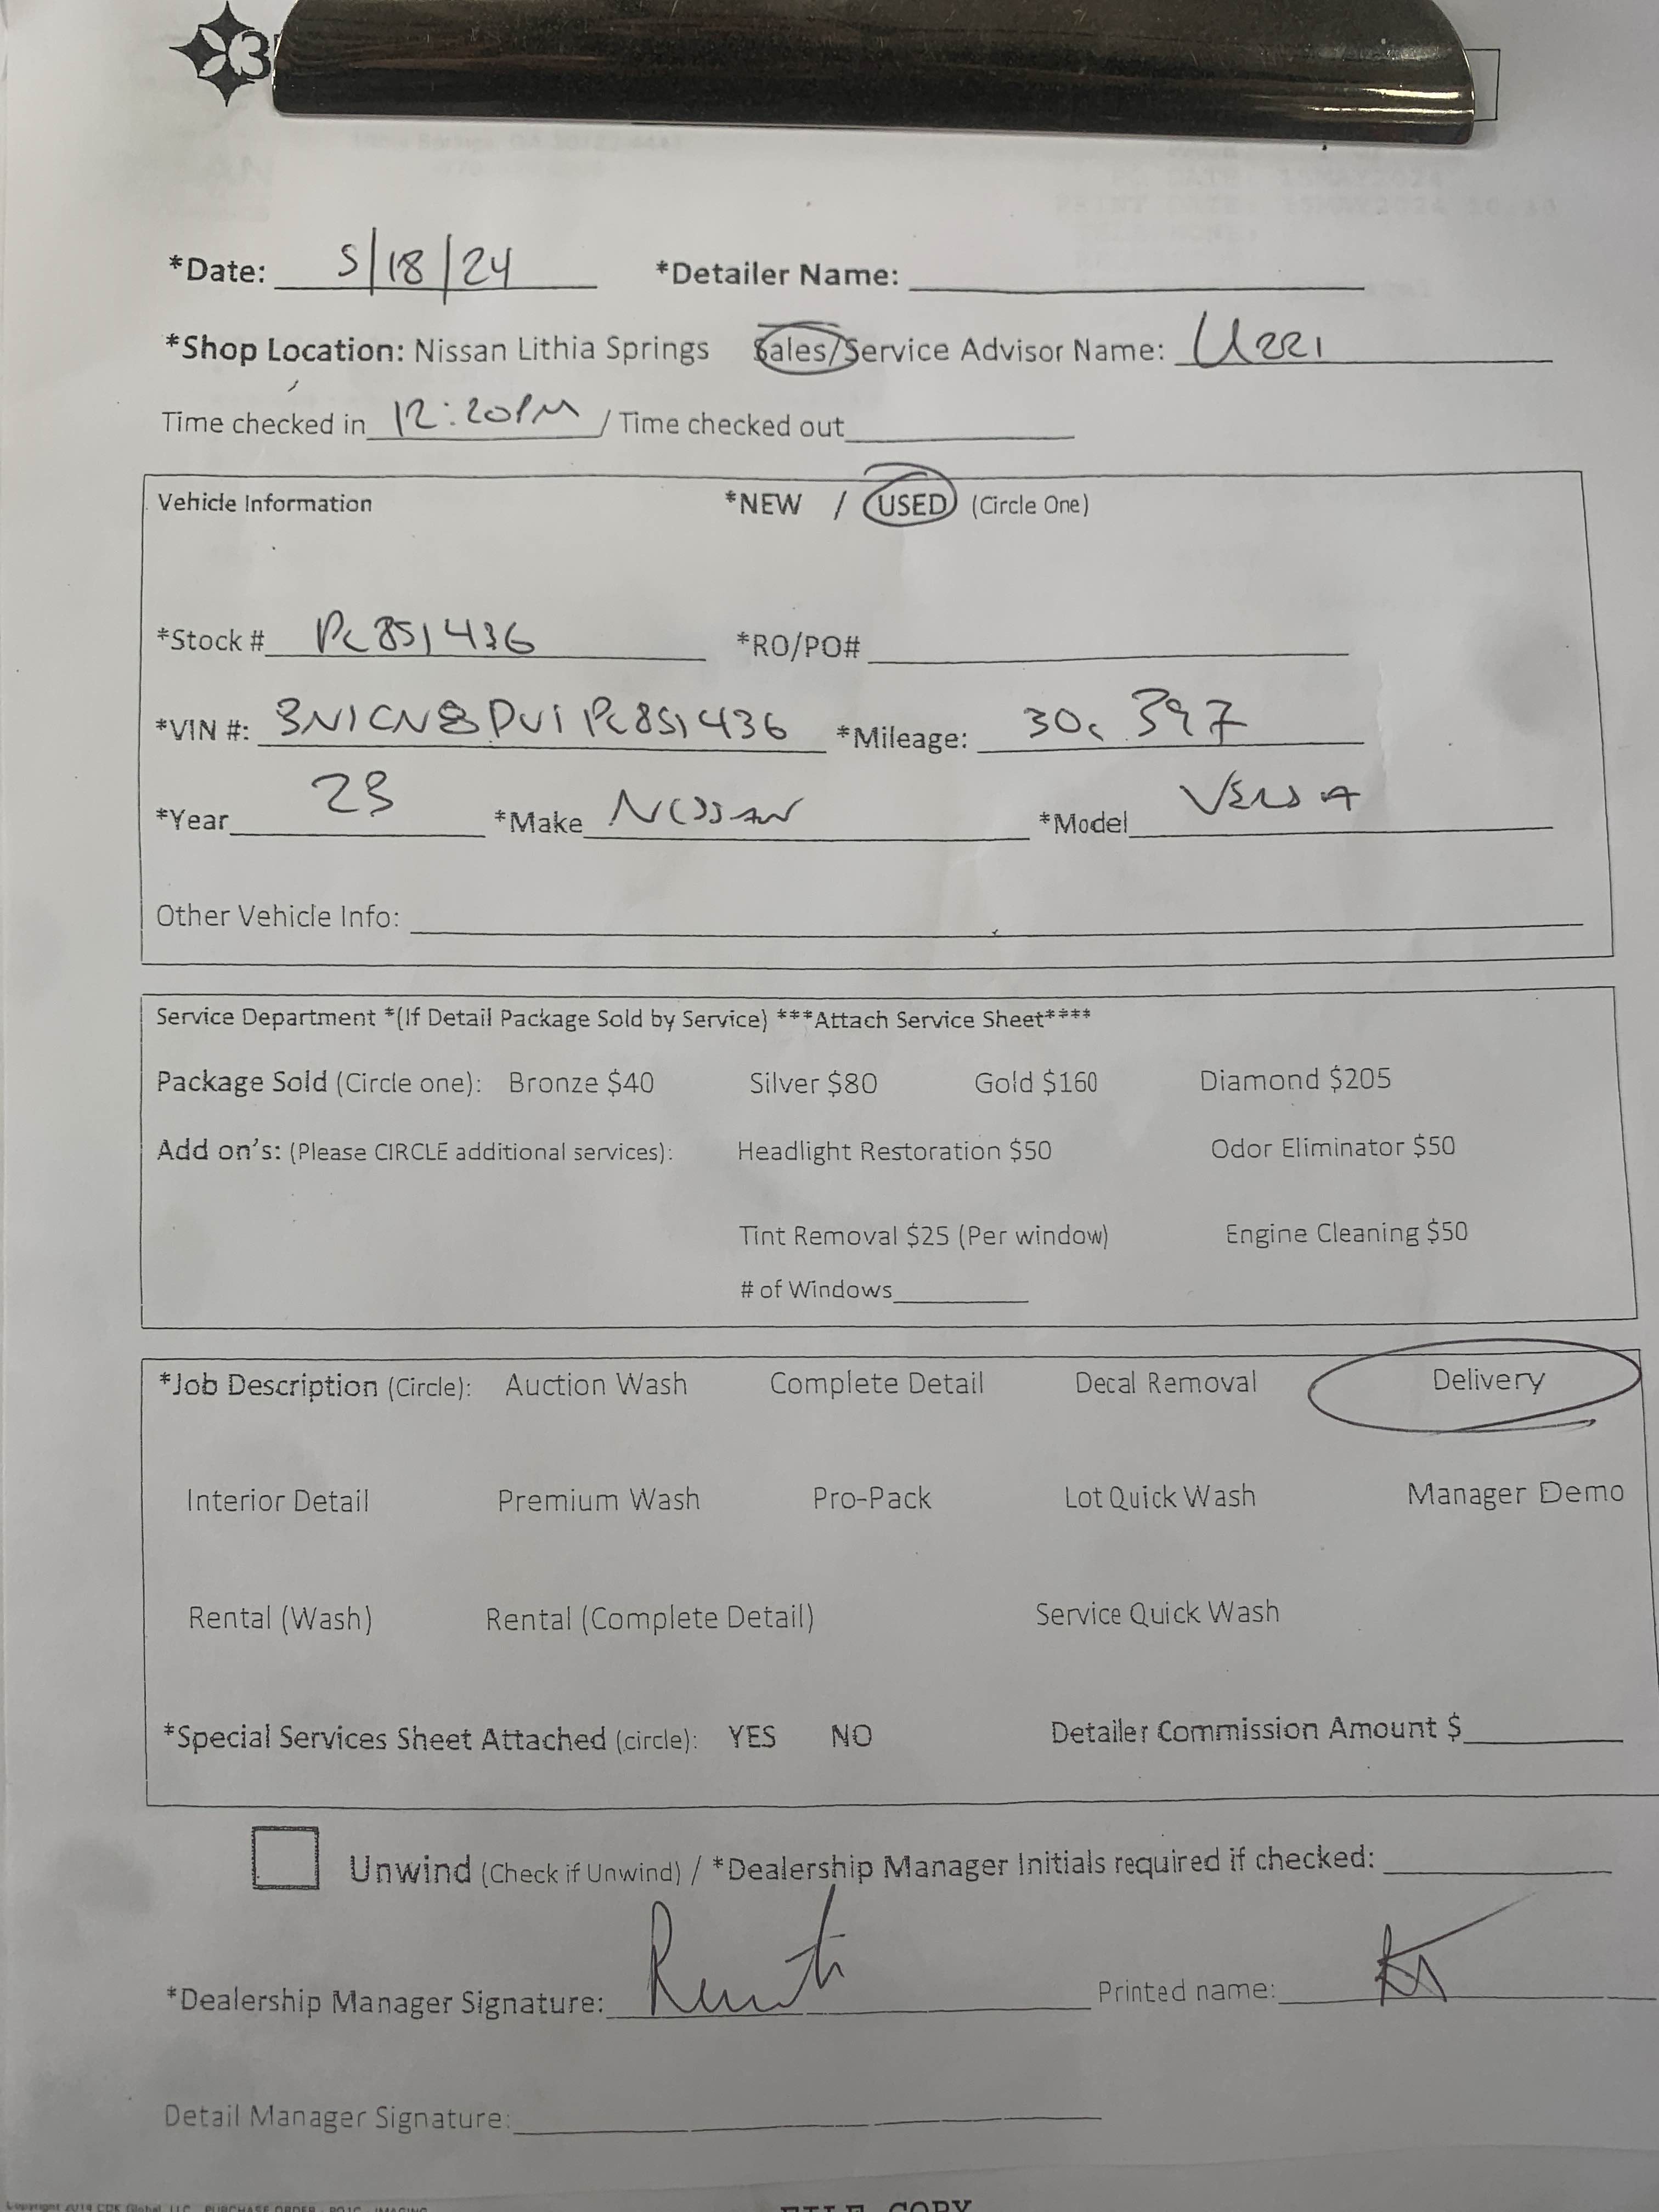 3
*Date: 5/18/24 *Detailer Name:
*Shop Location: Nissan Lithia Springs Sales/Service Advisor Name: Uzzi
Time checked in 12:20PM / Time checked out
Vehicle Information *NEW / USED (Circle One)
*Stock # PC851436 *RO/PO#
*VIN #: 3N1CN8DV1PC851436 *Mileage: 30,397
*Year 23 *Make NISSAN *Model VERSA
Other Vehicle Info:
Service Department *(If Detail Package Sold by Service) ***Attach Service Sheet****
Package Sold (Circle one): Bronze $40 Silver $80 Gold $160 Diamond $205
Add on's: (Please CIRCLE additional services): Headlight Restoration $50 Odor Eliminator $50
Tint Removal $25 (Per window) Engine Cleaning $50
# of Windows
*Job Description (Circle): Auction Wash Complete Detail Decal Removal Delivery
Interior Detail Premium Wash Pro-Pack Lot Quick Wash Manager Demo
Rental (Wash) Rental (Complete Detail) Service Quick Wash
*Special Services Sheet Attached (circle): YES NO Detailer Commission Amount $
Unwind (Check if Unwind) / *Dealership Manager Initials required if checked:
*Dealership Manager Signature: Printed name:
Detail Manager Signature:
Copyright 2014 CDK Global, LLC PURCHASE ORDER - PO1C - IMAGING
FILE COPY